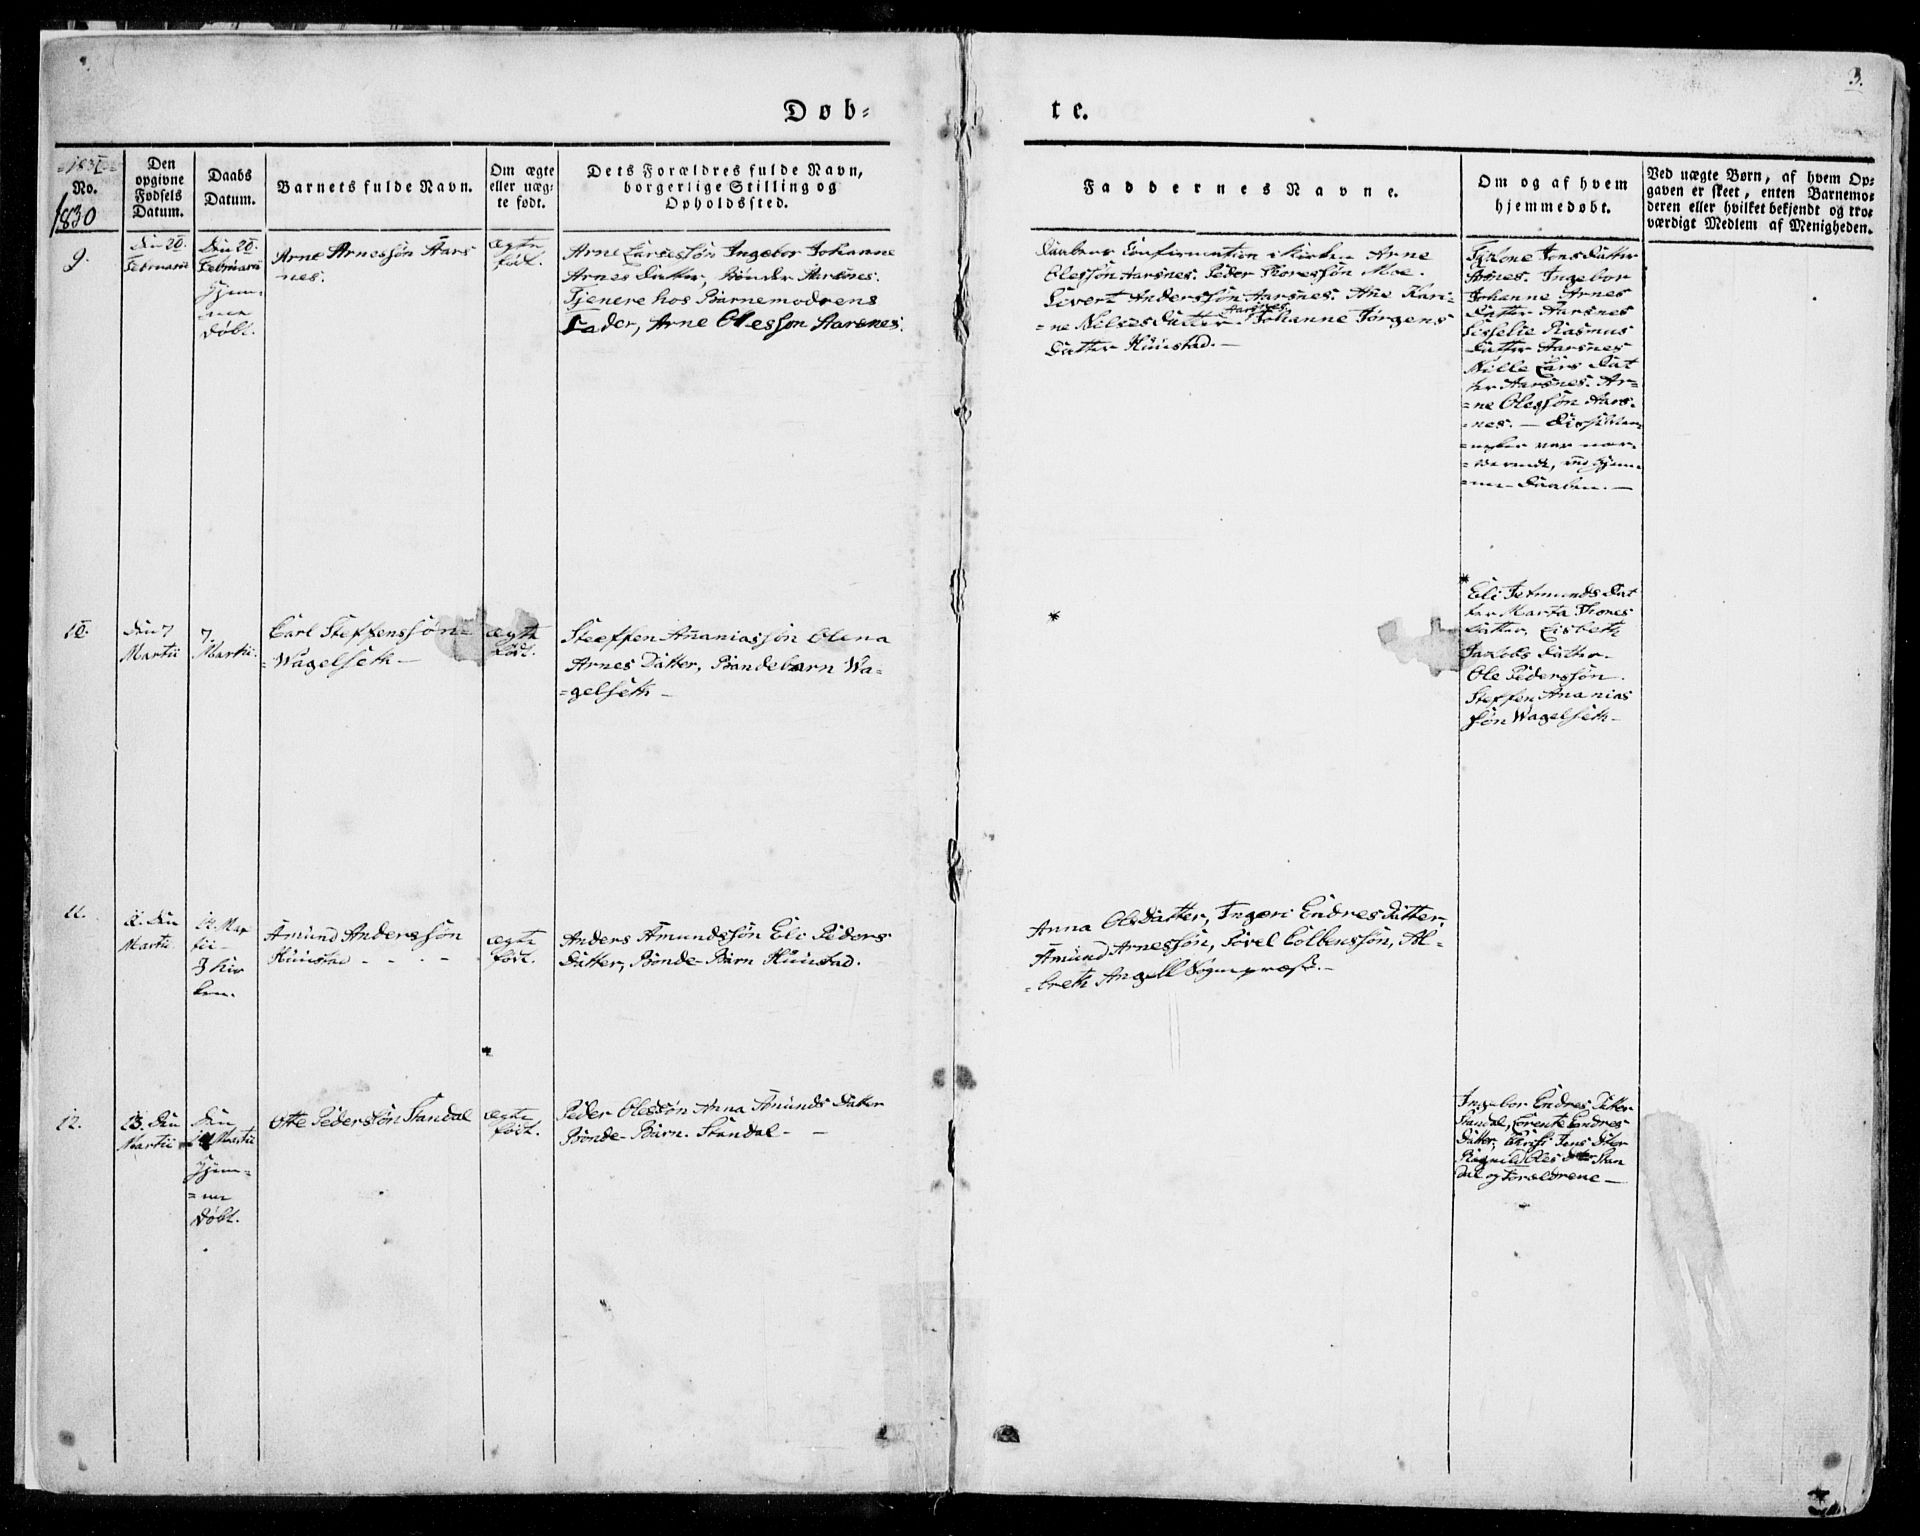 3.
Døb=
te.
1830
No.
1830
Den
opgivne
Fødsels
Datum.
Daabs
Datum.
Barnets fulde Navn.
Om ægte
eller uæg-
te født.
Dets Forældres fulde Navn,
borgerlige Stilling og
Opholdssted.
Faddernes Navne.
Om og af hvem
hjemmedøbt.
Ved uægte Børn, af hvem Op-
gaven er skeet, enten Barnemo-
deren eller hvilket bekjendt og tro-
værdigt Medlem af Menigheden.
9.
Din 20.
Februarii
Din 20.
Februarii
Hjem-
me
døbt.
Arne Arnessøn Aars
nes.
ægte
født.
Arne Larsessøn Ingebor Johanne
Arnes Datter, Bønder Aarsnes.
Tjenere hos Barnemodrens
Fader, Arne Olessøn Aarsnes.
Daabens Confirmation i Kirken Arne
Olessøn Aarsnes. Peder Thoressøn Moe.
Sivert Anderssøn Aarsnes. Ane Kari-
=ne Nelses Datter Aarsnes Johanne Jørgens
Datter Huustad.-
Jens Datter
Aarsnes. Ingebor
Johanne Arnes
Datter Aarsnes
Rasmus
Datter Aarsnes
Nille Lars Dat
ter Aarsnes. Ar=
=ne Olessøn Aars=
=nes. -
var nær=
=værende, ved Hjem=
=me-Daaben.-
10.
Din 7
Martii
7.
Martii.
Carl Steffenssøn
=Wagelseth-
ægte
født.
Steffen Ananiassøn Olena
Arnes Datter, Bondebarn Wa-
=gelseth-
*
*
Eli Ietmunds Dat
ter Marta Thores
Datter, Lisbeth
Jakobs Datter-
Ole Pederssøn.
Steffen Ananias
søn Wagelseth-
11.
Din
Martii
14. Mar
tii-
I Kir
ken.
Amund Anderssøn
Huustad - . . -
ægte
født.
Anders Amundssøn Eli Peders
Datter, Bønde-Barn Huustad.
Anna Ols Datter, Ingeri Endres Datter
Amund Arnessøn, Povel Colbenssøn, Al-
=breth Angell Sognepræst.-
12.
13. Din
Martii
Din
Martii
Hjem=
=me
døbt.
Otte Pederssøn Standal
ægte
født.
Peder Olessøn Anna Amunds Datter
Bønde-Barn. Standal- -
Ingebor Endres Datter
Standal, Lorente Endres
Datter. Jens Datter
Ragnild Oles Datter Stan
dal og Forældrene-